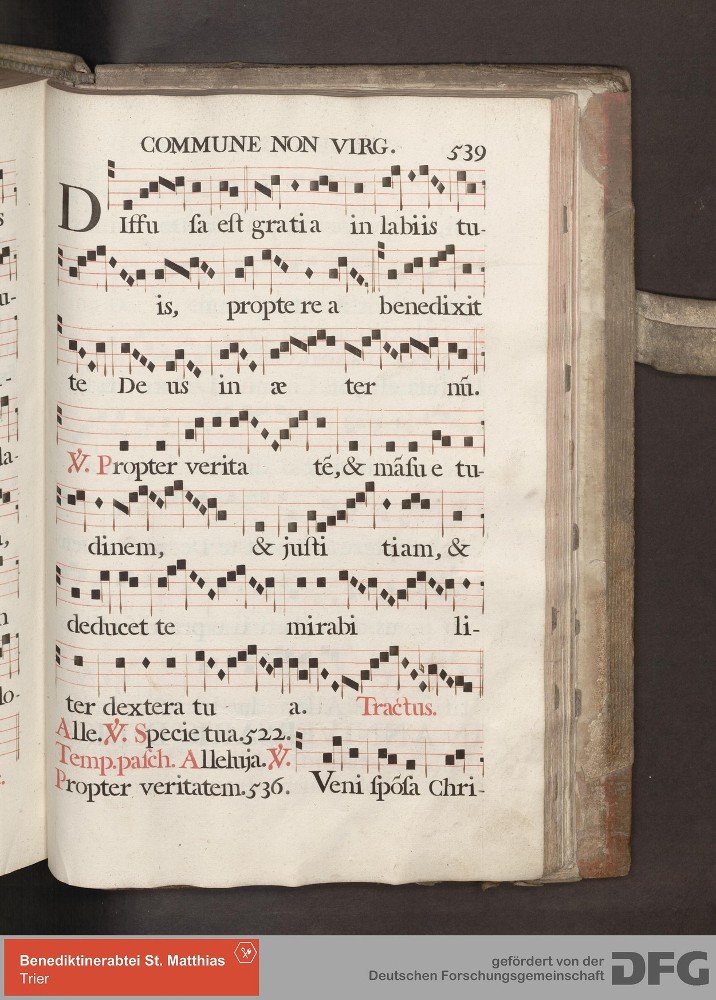 COMMUNE NON VIRG.
539
DIffu sa eſt gratia in labiis tu-
is, propte re a benedixit
te De us in æ ter nū.
℣. Propter verita tē, & māſu e tu-
dinem, & juſti tiam, &
deducet te mirabi li-
ter dextera tu a. Tractus.
Alle. ℣. Specie tua. 522.
Temp. paſch. Alleluja. ℣.
Propter veritatem. 536. Veni ſpōſa Chri-
Benediktinerabtei St. Matthias
Trier
gefördert von der
Deutschen Forschungsgemeinschaft
DFG